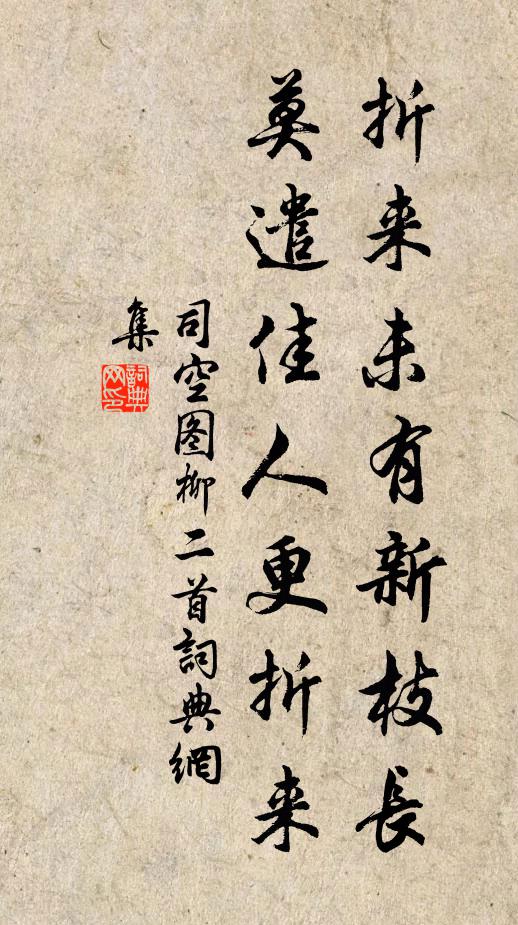 折来未有新枝長
莫遣佳人更折来
司空图柳二首詞典網
集
詞典
网印